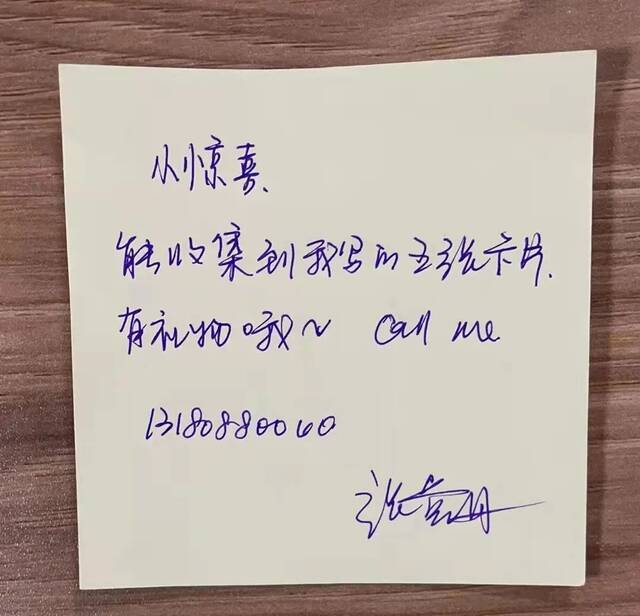 小惊喜
能收集到我写的五张卡片.
有礼物哦~ Call me
13180880060